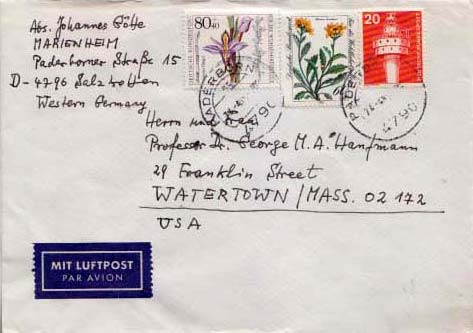 Abs. Johannes Götte
MARIENHEIM
Paderborner Straße 15
D-4796 Salzkotten
Western Germany
80+40
20
PADERBORN
4790
PADER
4790
Herrn und Frau
Professor Dr. George M. A. Hanfmann
29 Franklin Street
WATERTOWN/MASS. 02 172
USA
MIT LUFTPOST
PAR AVION